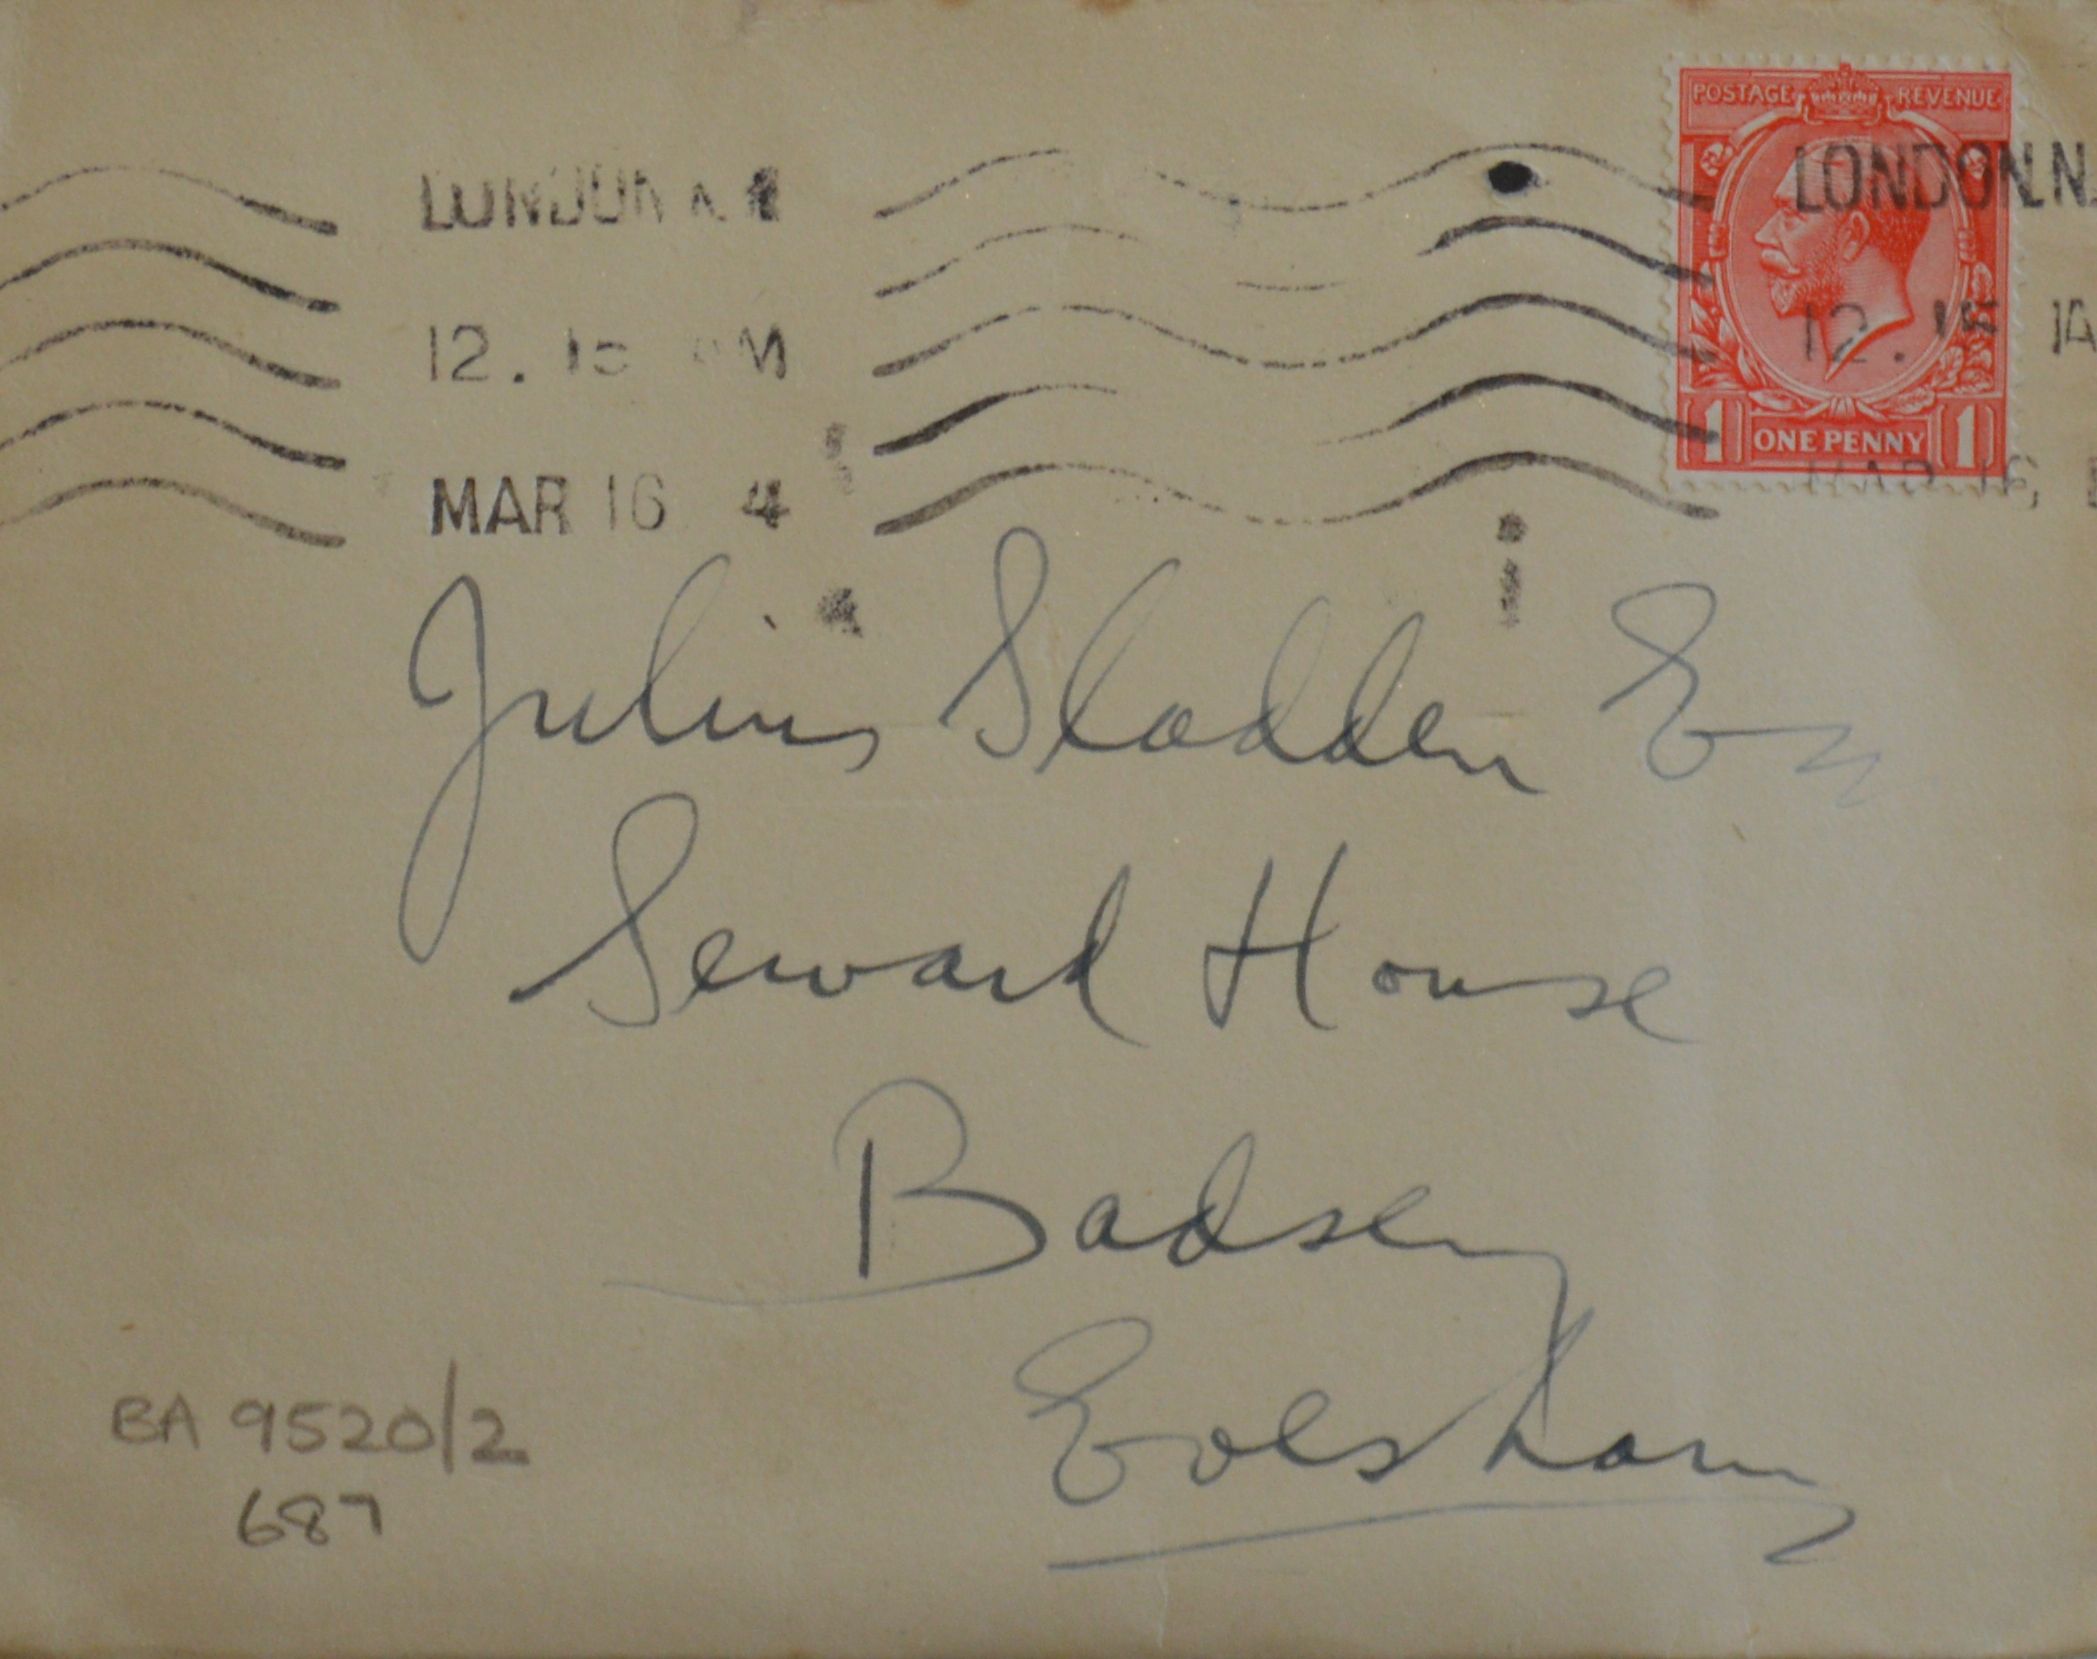 POSTAGE REVENUE
LONDON. N.
12. 15 AM
MAR 16 4
LONDON.N.
12. 15 A
MAR 16,
1 ONE PENNY 1
Julius Sladden Esq
Seward House
Badsey
Evesham
BA 9520/2
687